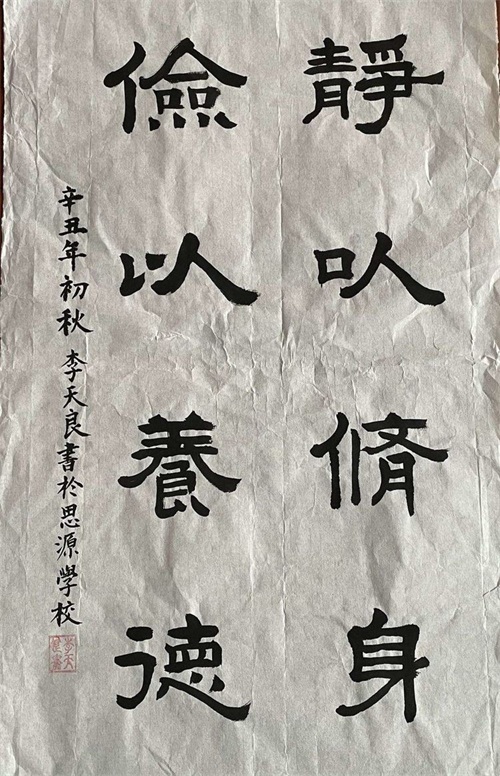 靜以脩身
儉以養德
辛丑年初秋 李天良書於思源學校